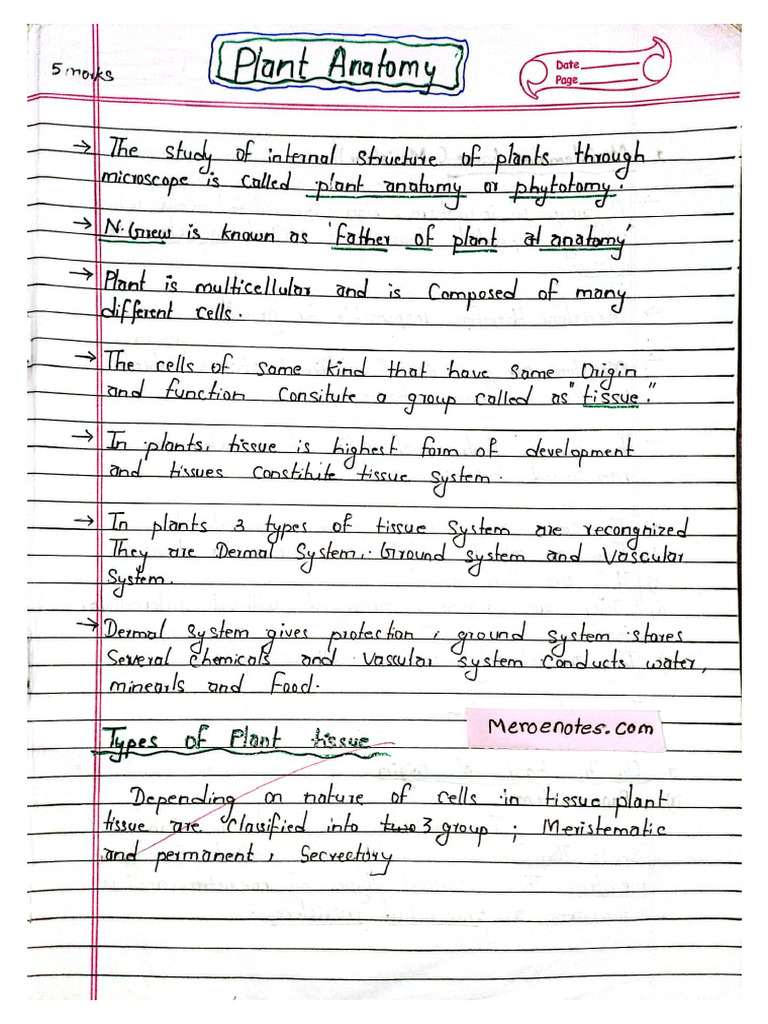 5 marks
Plant Anatomy
Date
Page
→ The study of internal structure of plants through
microscope is called plant anatomy or phytotomy.
→ N. Grew is known as 'father of plant at anatomy'
→ Plant is multicellular and is Composed of many
different cells.
→ The cells of same kind that have same Origin
and function Consitute a group called as "tissue."
→ In plants, tissue is highest form of development
and tissues constitute tissue system.
→ In plants 3 types of tissue system are recongnized
They are Dermal System, Ground system and Vascular
System.
→ Dermal system gives protection, ground system stores
Several chemicals and vascular system conducts water,
minearls and food.
Types of Plant tissue
Meroenotes.com
Depending on nature of cells in tissue plant
tissue are classified into two 3 group ; Meristematic
and permanent, Secrectory